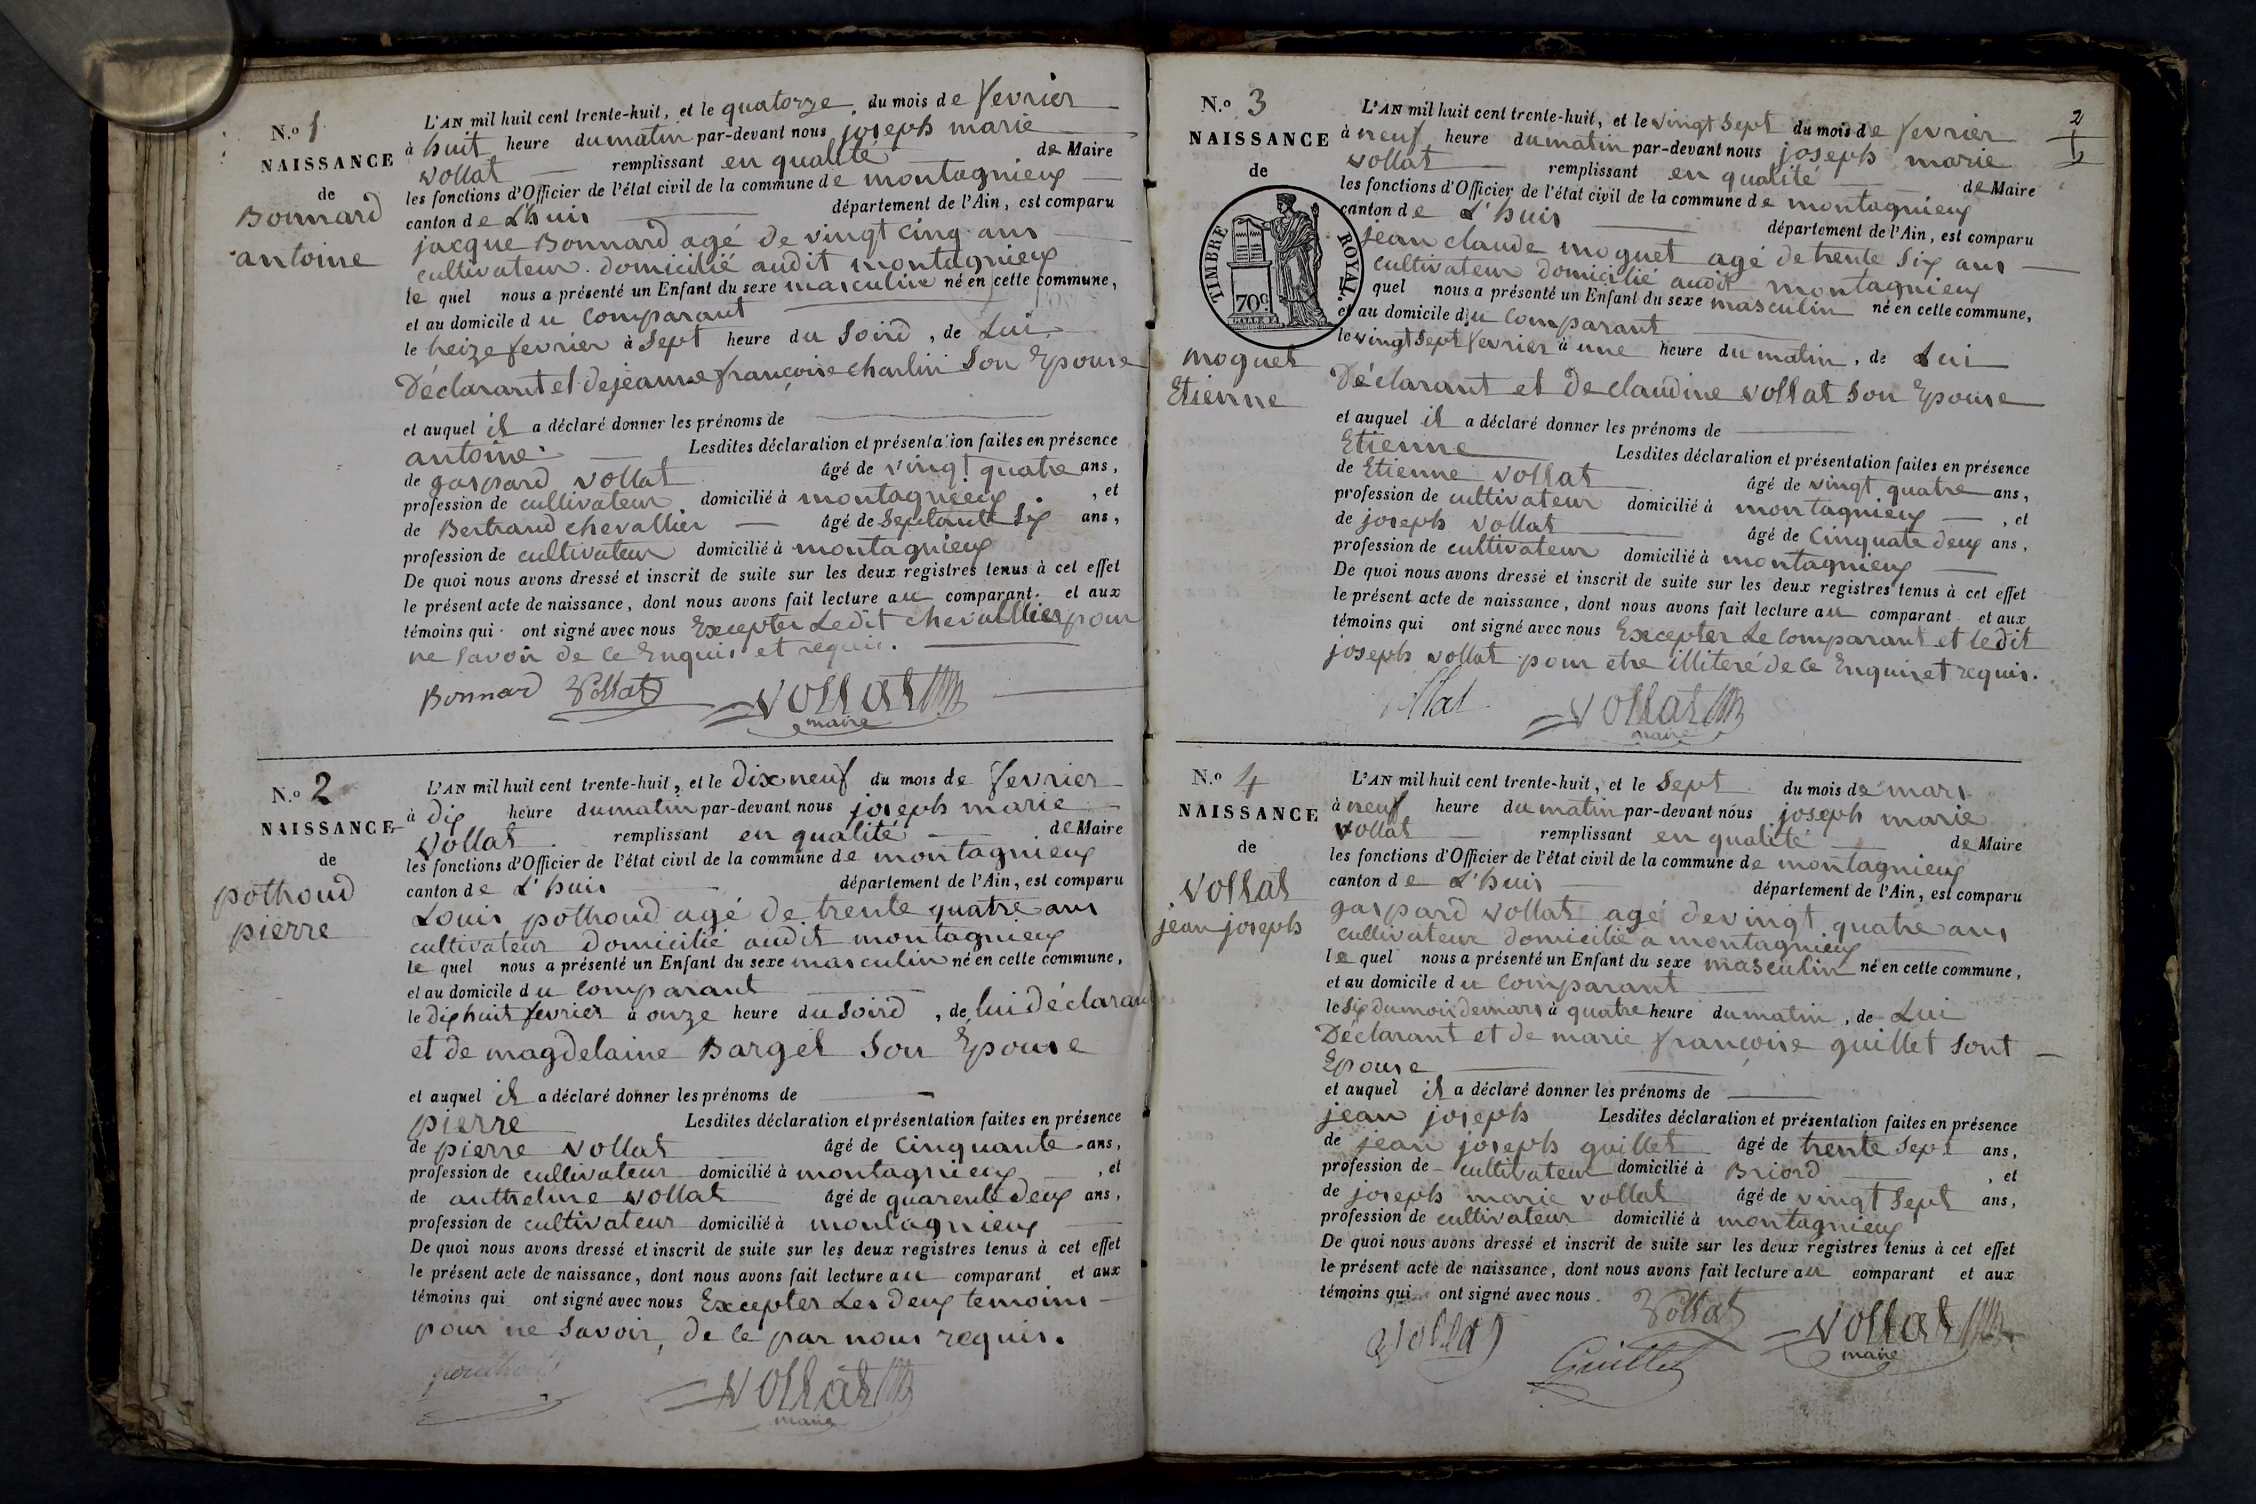 N.o 1
NAISSANCE
de
Bonnard
antoine
L'AN mil huit cent trente-huit, et le quatorze du mois de fevrier
à huit heure du matin par-devant nous joseph marie
vollat remplissant en qualité de Maire
les fonctions d'Officier de l'état civil de la commune de montagnieux
canton de L'huis département de l'Ain, est comparu
jacque Bonnard agé de vingt cinq ans
cultivateur domicilié audit montagnieux
le quel nous a présenté un Enfant du sexe masculin né en cette commune,
et au domicile du comparant
le treize fevrier à sept heure du soird, de Lui
Déclarant et de jeanne françoise charlin son Epouse
et auquel il a déclaré donner les prénoms de
antoine Lesdites déclaration et présentation faites en présence
de gaspard vollat âgé de vingt quatre ans,
profession de cultivateur domicilié à montagnieux, et
de Bertrand chevallier âgé de septante six ans,
profession de cultivateur domicilié à montagnieux
De quoi nous avons dressé et inscrit de suite sur les deux registres tenus à cet effet
le présent acte de naissance, dont nous avons fait lecture au comparant et aux
témoins qui ont signé avec nous Excepter Ledit chevallier pour
ne savoir de ce Enquis et requis.
Bonnard Vollat vollat
maire
N.o 2
NAISSANCE
de
pothoud
pierre
L'AN mil huit cent trente-huit, et le dix neuf du mois de fevrier
à dix heure du matin par-devant nous joseph marie
vollat remplissant en qualité de Maire
les fonctions d'Officier de l'état civil de la commune de montagnieux
canton de L'huis département de l'Ain, est comparu
Louis pothoud agé de trente quatre ans
cultivateur domicilié audit montagnieux
le quel nous a présenté un Enfant du sexe masculin né en cette commune,
et au domicile du comparant
le dix huit fevrier à onze heure du soird, de lui déclarant
et de magdelaine Barget son Epouse
et auquel il a déclaré donner les prénoms de
pierre Lesdites déclaration et présentation faites en présence
de pierre vollat âgé de cinquante ans,
profession de cultivateur domicilié à montagnieux, et
de anthelme vollat âgé de quarente deux ans,
profession de cultivateur domicilié à montagnieux
De quoi nous avons dressé et inscrit de suite sur les deux registres tenus à cet effet
le présent acte de naissance, dont nous avons fait lecture au comparant et aux
témoins qui ont signé avec nous Excepter Les deux temoins
pour ne savoir, de ce par nous requis.
vollat
maire
2
N.o 3
NAISSANCE
de
TIMBRE ROYAL.
70c
moguet
Etienne
L'AN mil huit cent trente-huit, et le vingt sept du mois de fevrier
à neuf heure du matin par-devant nous joseph marie
vollat remplissant en qualité de Maire
les fonctions d'Officier de l'état civil de la commune de montagnieux
canton de L'huis département de l'Ain, est comparu
jean claude moguet agé de trente six ans
cultivateur domicilié audit montagnieux
quel nous a présenté un Enfant du sexe masculin né en cette commune,
et au domicile du comparant
le vingt sept fevrier à une heure du matin, de Lui
Déclarant et de claudine vollat son Epouse
et auquel il a déclaré donner les prénoms de
Etienne Lesdites déclaration et présentation faites en présence
de Etienne vollat âgé de vingt quatre ans,
profession de cultivateur domicilié à montagnieux, et
de joseph vollat âgé de cinquate deux ans,
profession de cultivateur domicilié à montagnieux
De quoi nous avons dressé et inscrit de suite sur les deux registres tenus à cet effet
le présent acte de naissance, dont nous avons fait lecture au comparant et aux
témoins qui ont signé avec nous Excepter Le comparant et ledit
joseph vollat pour etre illiteré de ce Enquis et requis.
vollat
maire
N.o 4
NAISSANCE
de
vollat
jean joseph
L'AN mil huit cent trente-huit, et le sept du mois de mars
à neuf heure du matin par-devant nous joseph marie
vollat remplissant en qualité de Maire
les fonctions d'Officier de l'état civil de la commune de montagnieux
canton de L'huis département de l'Ain, est comparu
gaspard vollat agé de vingt quatre ans
cultivateur domicilié a montagnieux
le quel nous a présenté un Enfant du sexe masculin né en cette commune,
et au domicile du comparant
le six du mois de mars à quatre heure du matin, de Lui
Déclarant et de marie françoise guillet sont
Epouse
et auquel il a déclaré donner les prénoms de
jean joseph Lesdites déclaration et présentation faites en présence
de jean joseph guillet âgé de trente sept ans,
profession de cultivateur domicilié à Briord, et
de joseph marie vollat âgé de vingt sept ans,
profession de cultivateur domicilié à montagnieux
De quoi nous avons dressé et inscrit de suite sur les deux registres tenus à cet effet
le présent acte de naissance, dont nous avons fait lecture au comparant et aux
témoins qui ont signé avec nous
Vollat vollat
maire
Guillet